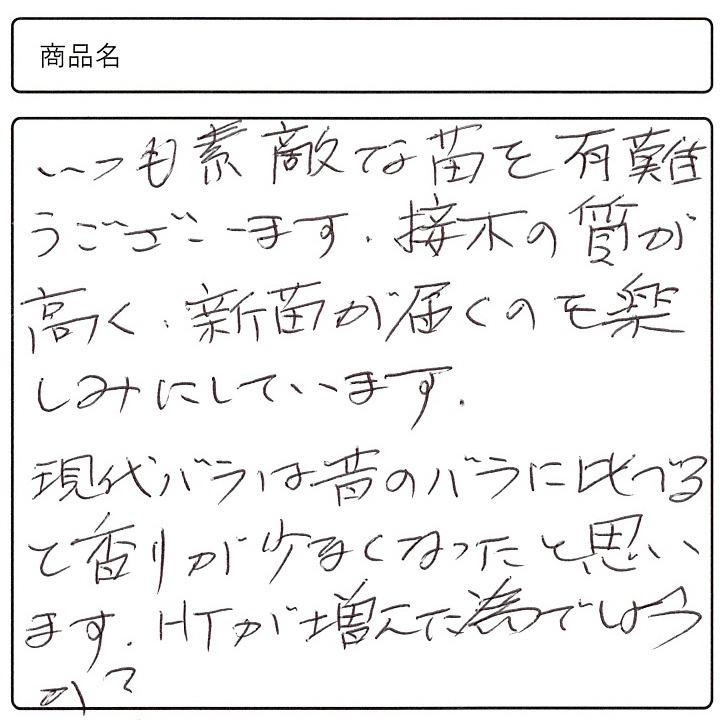 商品名
いつも素敵な苗を有難
うございます．接木の質が
高く、新苗が届くのを楽
しみにしています．
現代バラは昔のバラに比べる
と香りが少なくなったと思い
ます．HTが増えた為でしょう
か？